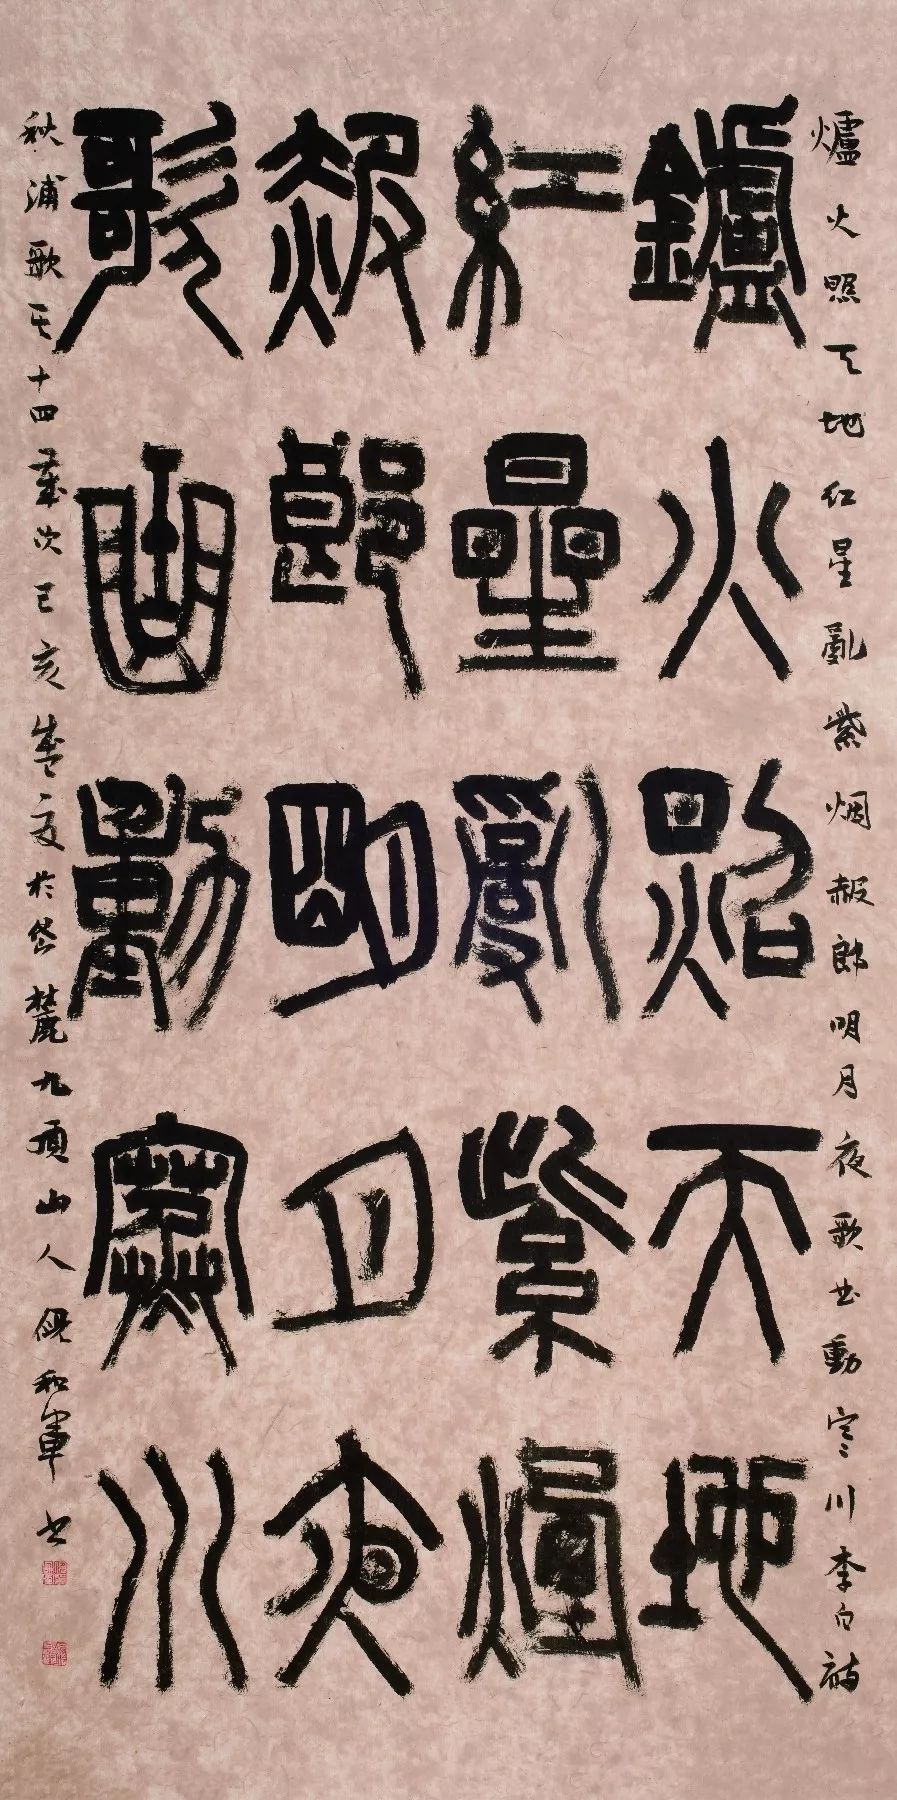 爐火照天地紅星亂紫烟赧郎明月夜歌曲動寒川李白詩
鑪火照天地
紅星亂紫煙
赧郎明月夜
歌曲動寒川
秋浦歌其十四歲次己亥盛夏於岱麓九頂山人倪和軍書